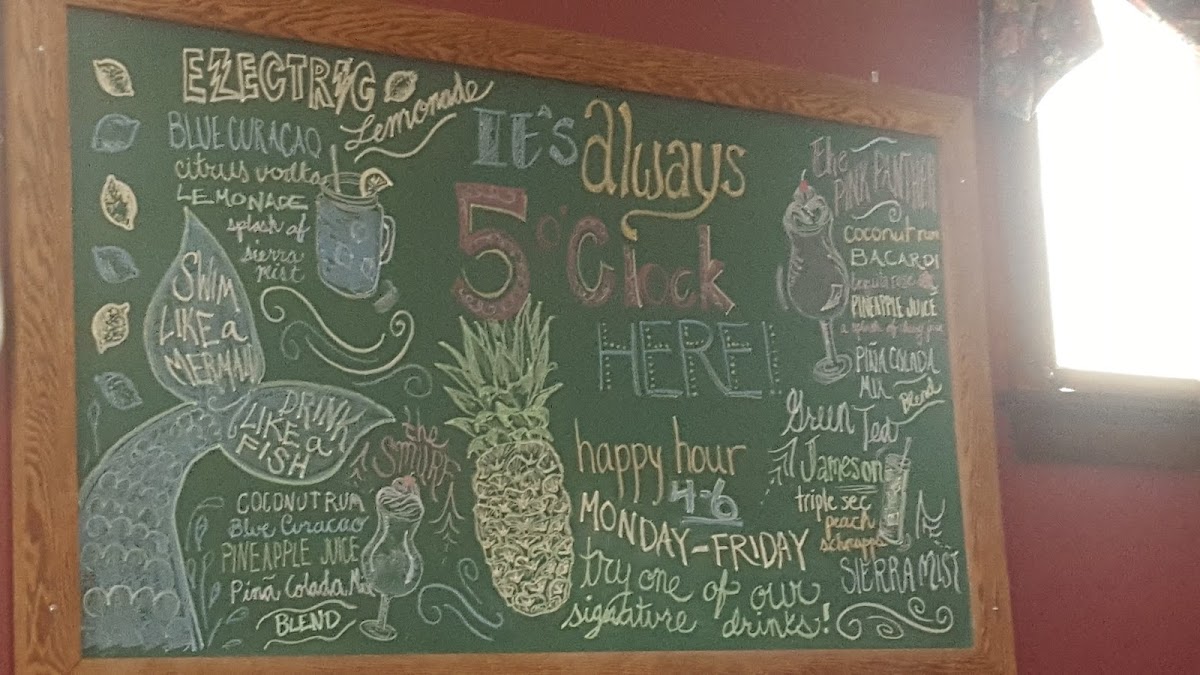 ELECTRIC
Lemonade
BLUE CURACAO
citrus vodka
LEMONADE
splash of
sierra
mist
SWIM
LIKE a
MERMAID
DRINK
LIKE a
FISH
the
SMURF
COCONUT RUM
Blue Curacao
PINEAPPLE JUICE
Pinã Colada
BLEND
IT'S
always
5 o'Clock
HERE!
happy hour
4-6
MONDAY-FRIDAY
try one of our
signature drinks!
the
PINK PANTHER
coconut rum
BACARDI
PINEAPPLE JUICE
a splash of
PIÑA COLADA
MIX
Blend
Green Tea
Jameson
triple sec
peach
schnapps
SIERRA MIST